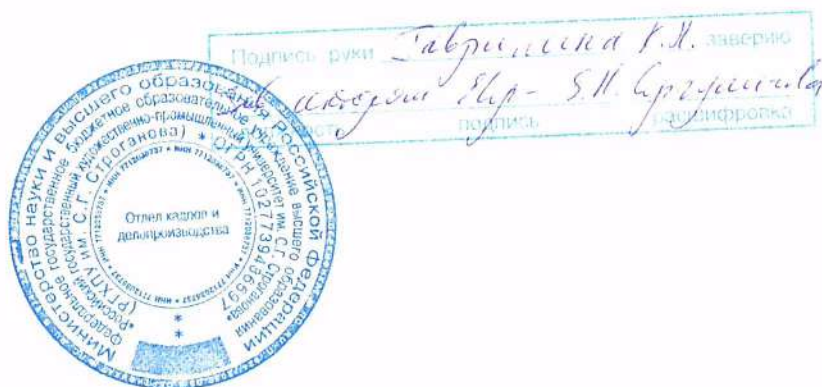 Подпись руки Гаврилина К.Л. заверяю
подпись расшифровка
Министерство науки и высшего образования Российской Федерации
Федеральное государственное бюджетное образовательное учреждение высшего образования
«Российский государственный художественно-промышленный университет им. С.Г. Строганова»
(РГХПУ им. С.Г. Строганова) * ОГРН 1027739486597
Отдел кадров и
делопроизводства